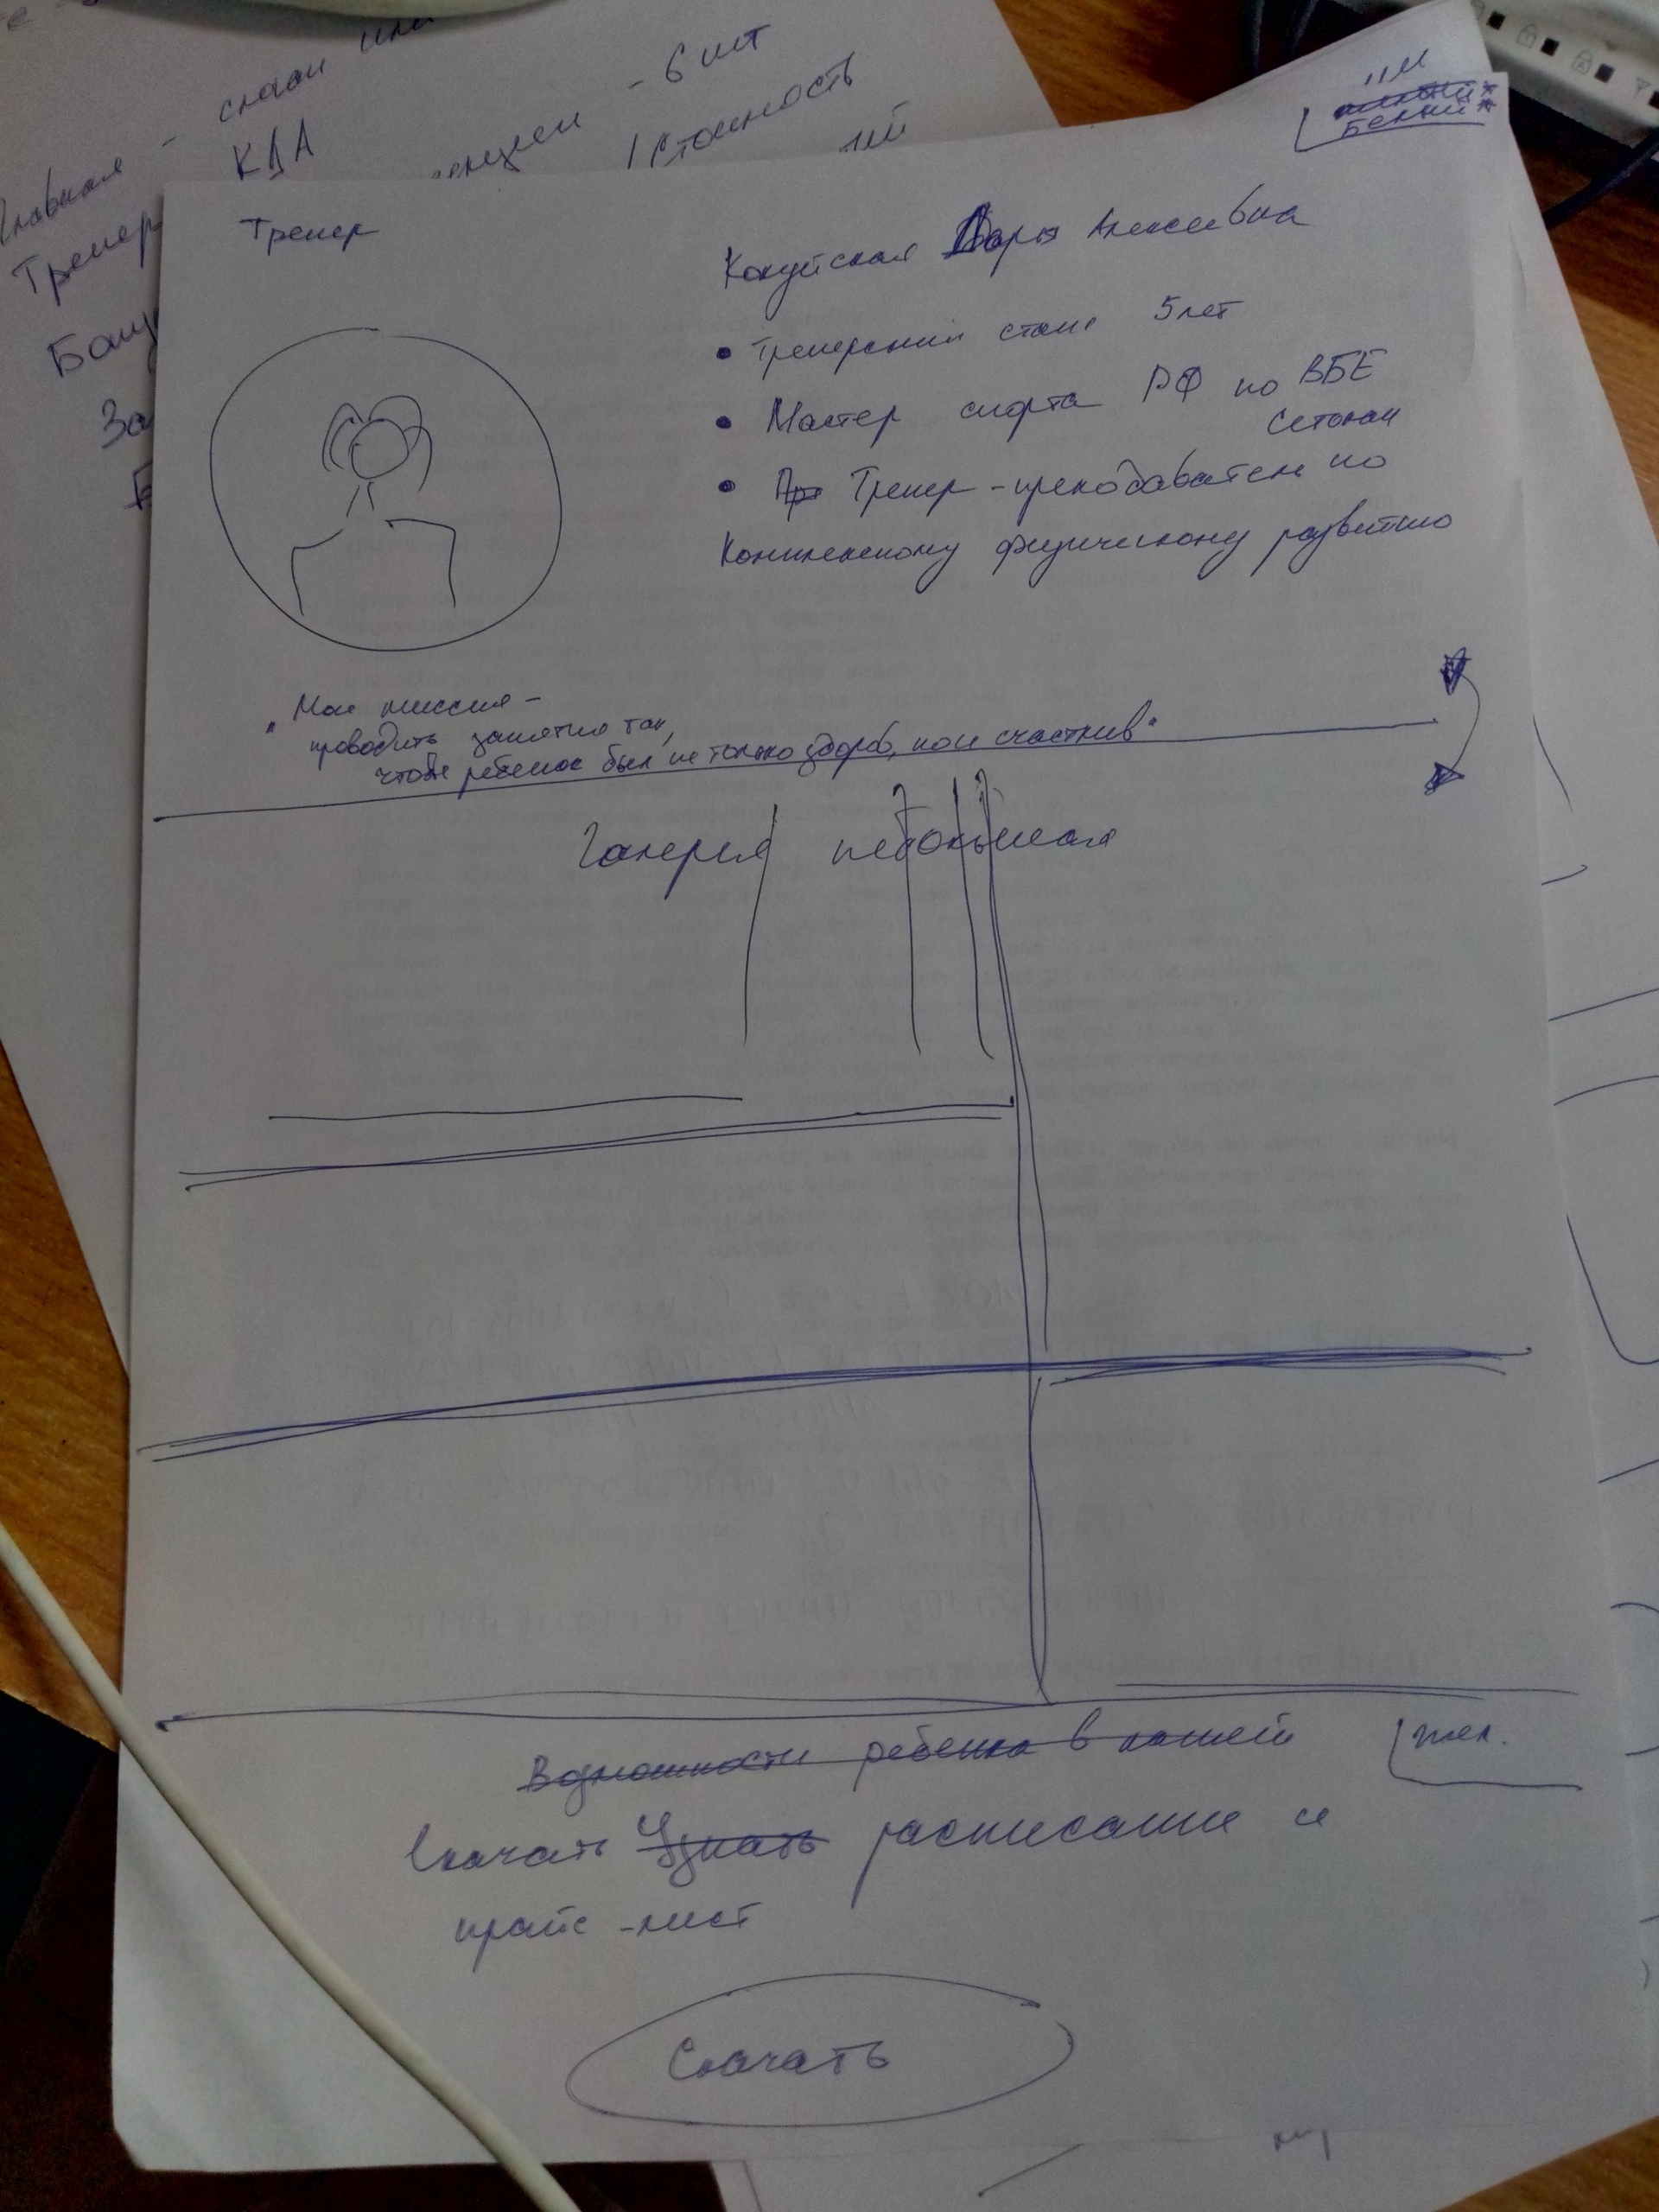 Главная - 
КДА
Тренер
- 6 шт
Стоимость
За
Белый
Тренер
Кокуйская Дарья Алексеевна
• Тренерский стаж 5 лет
• Мастер спорта РФ по ВБЕ
Сетокан
• Тренер-преподаватель по
Комплексному физическому развитию
"Моя миссия -
проводить занятия так,
чтобы ребенок был не только здоров, но и счастлив"
Галерея небольшая
Возможности ребенка в нашей
Скачать Узнать расписание и
прайс-лист
Скачать